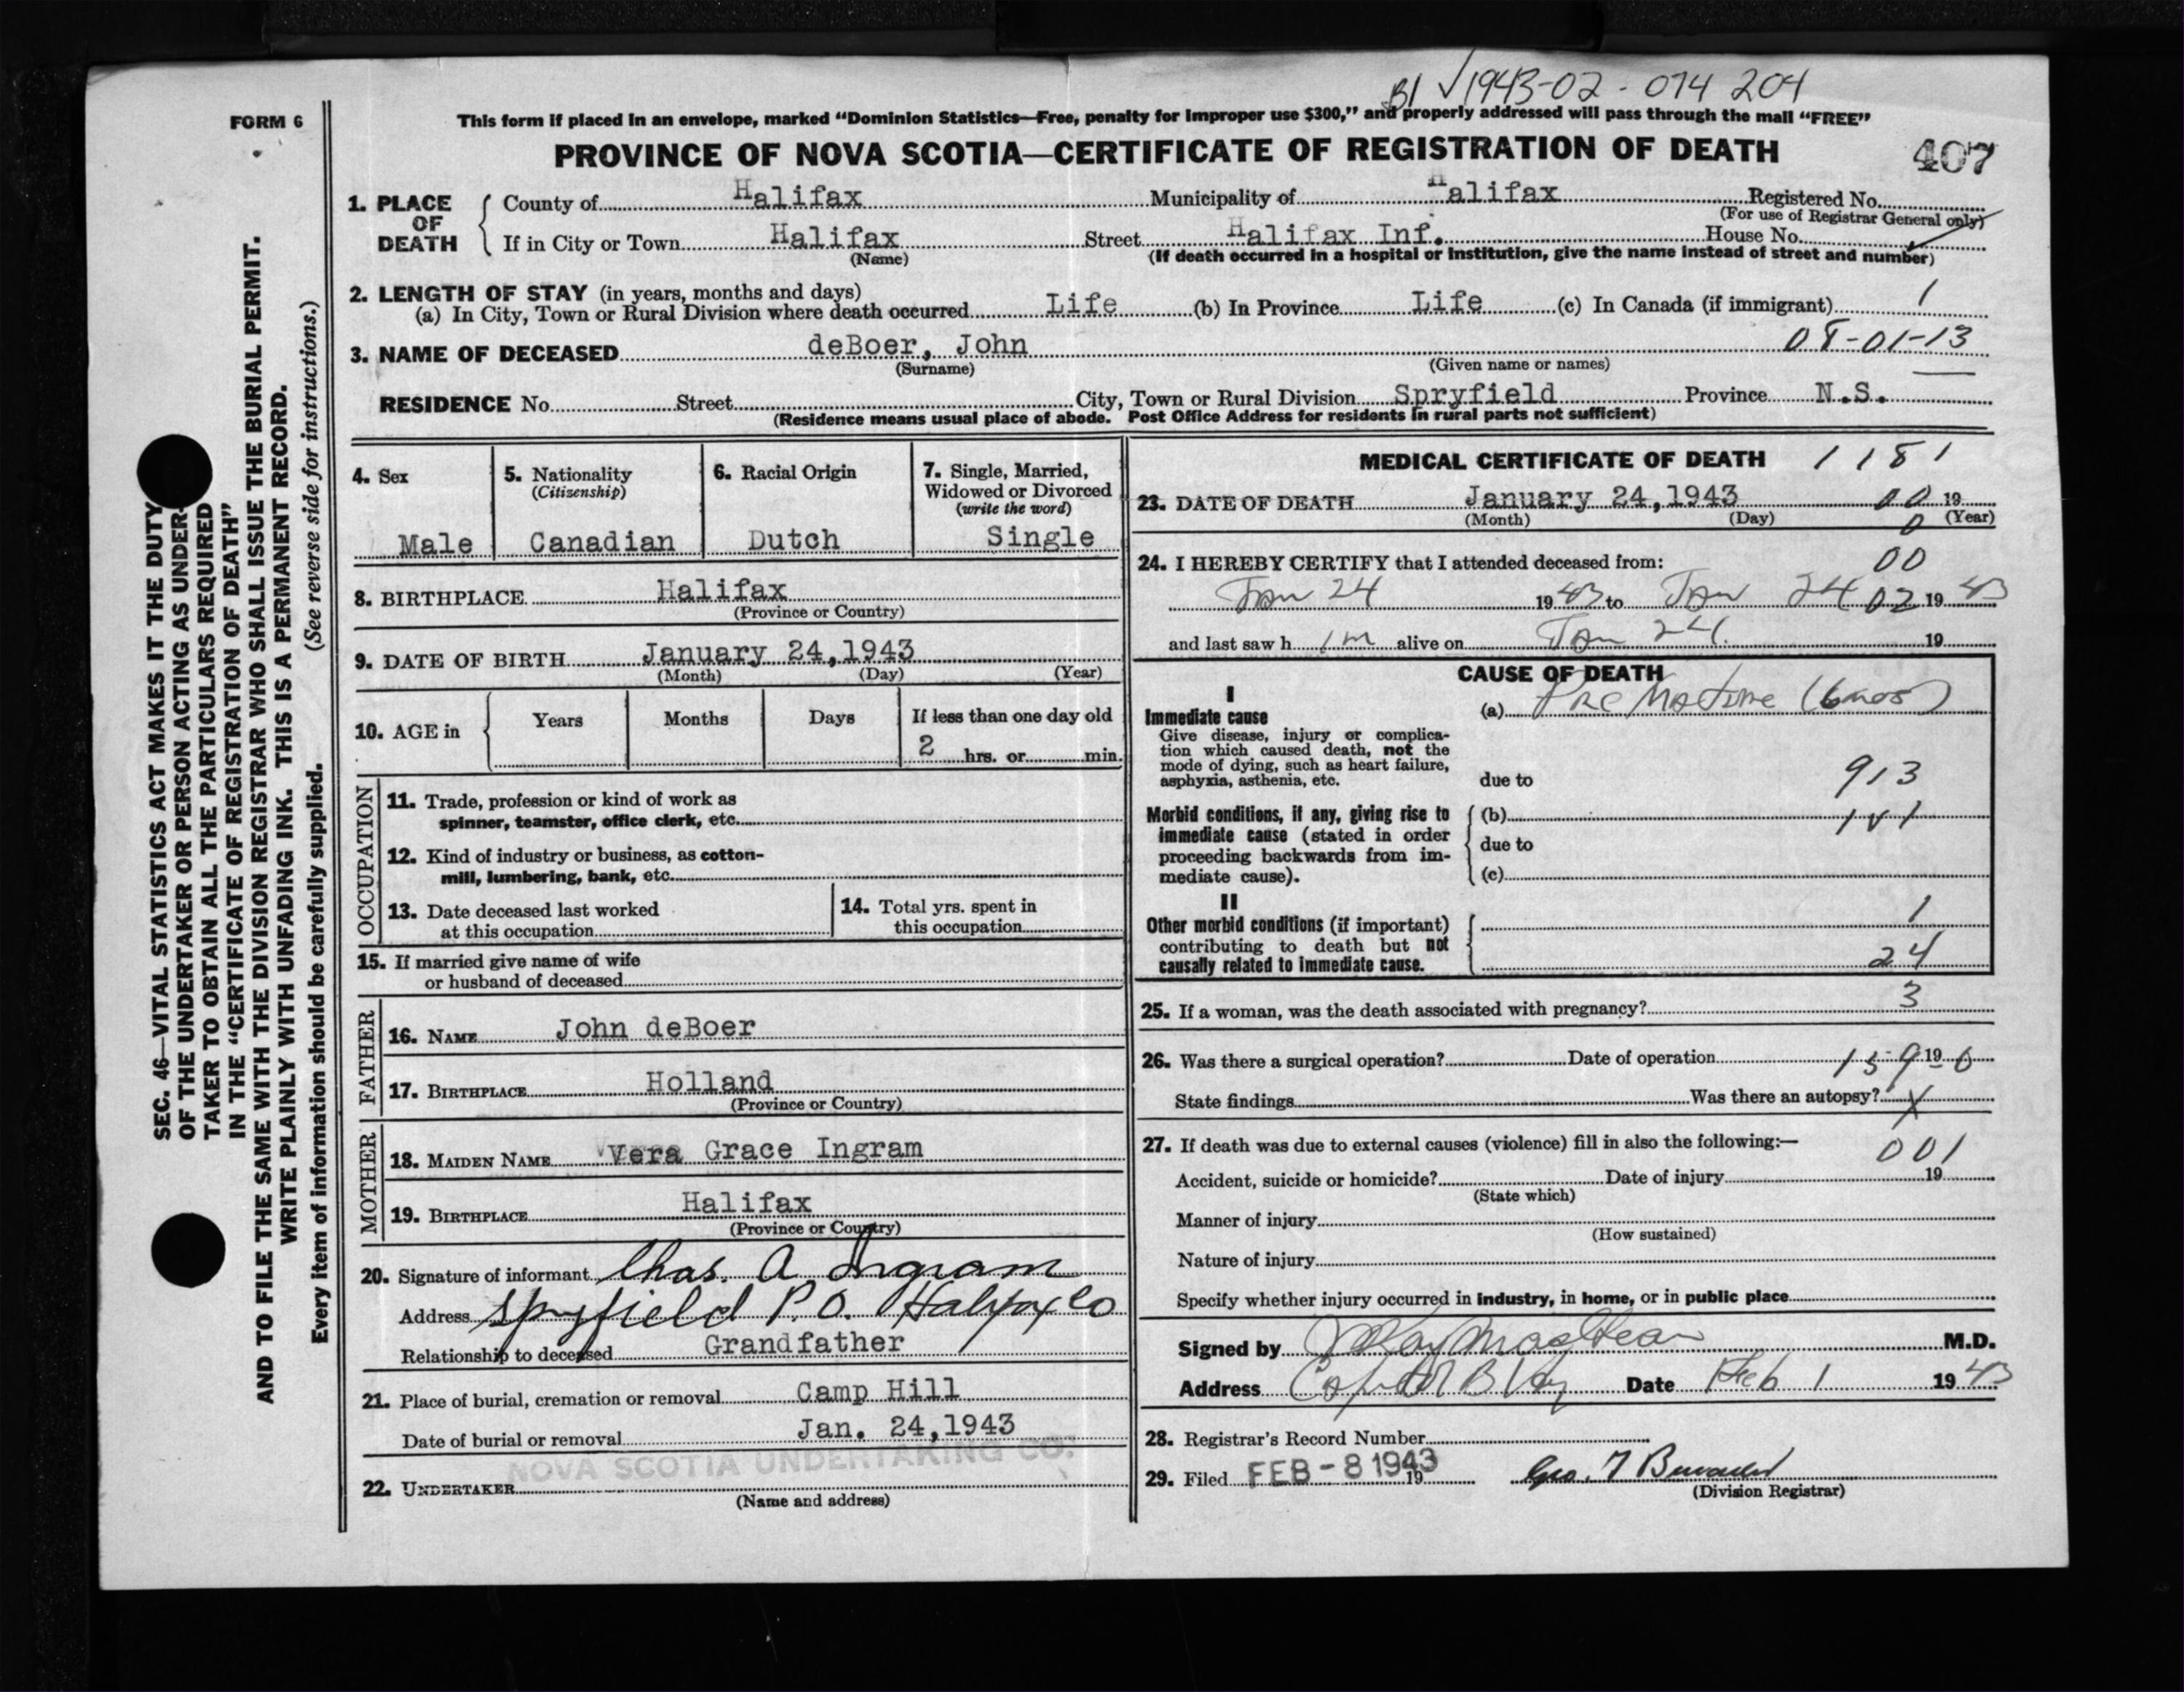 B1 √1943-02-074 204
FORM 6
This form if placed in an envelope, marked “Dominion Statistics—Free, penalty for improper use $300,” and properly addressed will pass through the mail “FREE”
PROVINCE OF NOVA SCOTIA—CERTIFICATE OF REGISTRATION OF DEATH 407
1. PLACE OF DEATH County of Halifax Municipality of Halifax Registered No.
(For use of Registrar General only)
If in City or Town Halifax Street Halifax Inf. House No.
(Name) (If death occurred in a hospital or institution, give the name instead of street and number)
2. LENGTH OF STAY (in years, months and days)
(a) In City, Town or Rural Division where death occurred Life (b) In Province Life (c) In Canada (if immigrant) 1
3. NAME OF DECEASED deBoer, John 08-01-13
(Surname) (Given name or names)
RESIDENCE No. Street City, Town or Rural Division Spryfield Province N.S.
(Residence means usual place of abode. Post Office Address for residents in rural parts not sufficient)
4. Sex 5. Nationality (Citizenship) 6. Racial Origin 7. Single, Married, Widowed or Divorced (write the word)
Male Canadian Dutch Single
8. BIRTHPLACE Halifax
(Province or Country)
9. DATE OF BIRTH January 24, 1943
(Month) (Day) (Year)
10. AGE in Years Months Days If less than one day old
2 hrs. or min.
OCCUPATION
11. Trade, profession or kind of work as
spinner, teamster, office clerk, etc.
12. Kind of industry or business, as cotton-
mill, lumbering, bank, etc.
13. Date deceased last worked
at this occupation
14. Total yrs. spent in
this occupation
15. If married give name of wife
or husband of deceased
FATHER
16. NAME John deBoer
17. BIRTHPLACE Holland
(Province or Country)
MOTHER
18. MAIDEN NAME Vera Grace Ingram
19. BIRTHPLACE Halifax
(Province or Country)
20. Signature of informant Chas. A Ingram
Address Spryfield P.O. Halifax Co
Relationship to deceased Grandfather
21. Place of burial, cremation or removal Camp Hill
Date of burial or removal Jan. 24, 1943
NOVA SCOTIA UNDERTAKING CO.
22. UNDERTAKER
(Name and address)
MEDICAL CERTIFICATE OF DEATH 1181
23. DATE OF DEATH January 24, 1943 00 19
(Month) (Day) 0 (Year)
24. I HEREBY CERTIFY that I attended deceased from: 00
Jan 24 1943 to Jan 24 02 1943
and last saw h im alive on Jan 24. 19
CAUSE OF DEATH
I
Immediate cause
Give disease, injury or complica-
tion which caused death, not the
mode of dying, such as heart failure,
asphyxia, asthenia, etc.
(a) PreMature (6mos)
due to 913
Morbid conditions, if any, giving rise to
immediate cause (stated in order
proceeding backwards from im-
mediate cause).
(b)
due to
(c)
II
Other morbid conditions (if important)
contributing to death but not
causally related to immediate cause.
1
24
25. If a woman, was the death associated with pregnancy? 3
26. Was there a surgical operation? Date of operation 19
State findings Was there an autopsy? X
27. If death was due to external causes (violence) fill in also the following:— 001
Accident, suicide or homicide? Date of injury 19
(State which)
Manner of injury
(How sustained)
Nature of injury
Specify whether injury occurred in industry, in home, or in public place
Signed by M.D.
Address Date Feb 1 1943
28. Registrar's Record Number
29. Filed FEB - 8 1943 19 Geo.
(Division Registrar)
SEC. 46—VITAL STATISTICS ACT MAKES IT THE DUTY
OF THE UNDERTAKER OR PERSON ACTING AS UNDER-
TAKER TO OBTAIN ALL THE PARTICULARS REQUIRED
IN THE “CERTIFICATE OF REGISTRATION OF DEATH”
AND TO FILE THE SAME WITH THE DIVISION REGISTRAR WHO SHALL ISSUE THE BURIAL PERMIT.
WRITE PLAINLY WITH UNFADING INK. THIS IS A PERMANENT RECORD.
Every item of information should be carefully supplied. (See reverse side for instructions.)